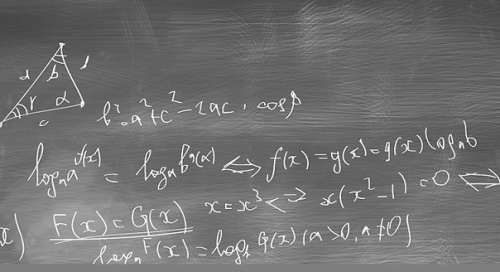 b² = a² + c² - 2ac · cosβ
logₐ a^f(x) = logₐ b^g(x) ⟺ f(x) = g(x) = g(x) logₐ b
x = x³ ⟺ x(x² - 1) = 0 ⟺
x) F(x) = G(x)
F(x) = log G(x) (a > 0, a ≠ 0)